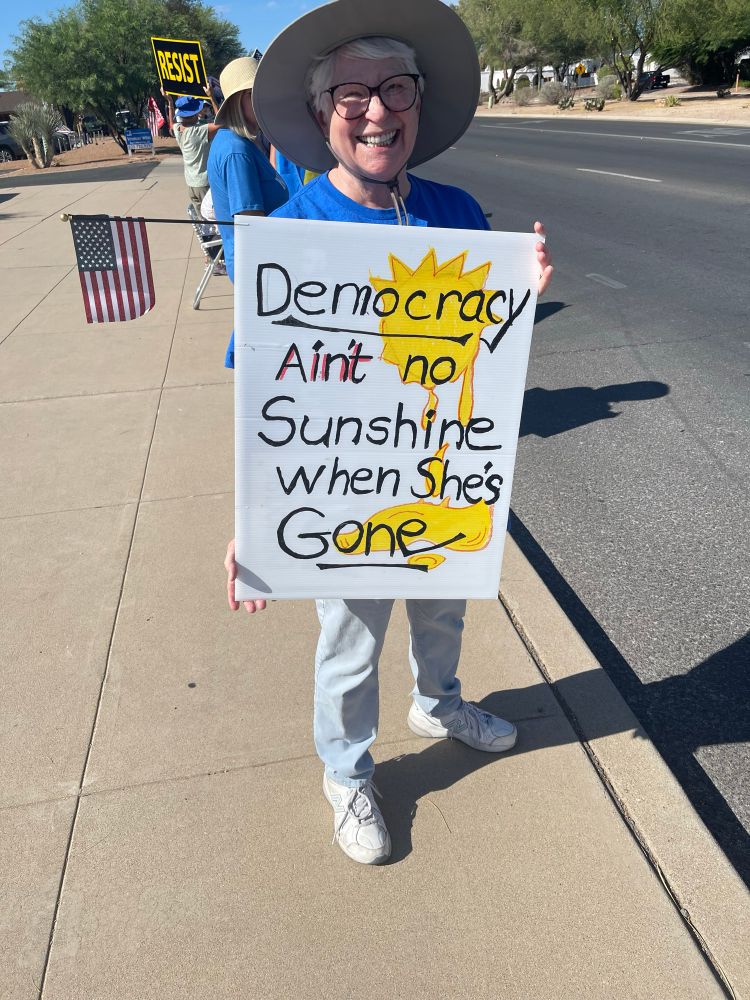 RESIST
Democracy
Ain't no
Sunshine
when She's
Gone